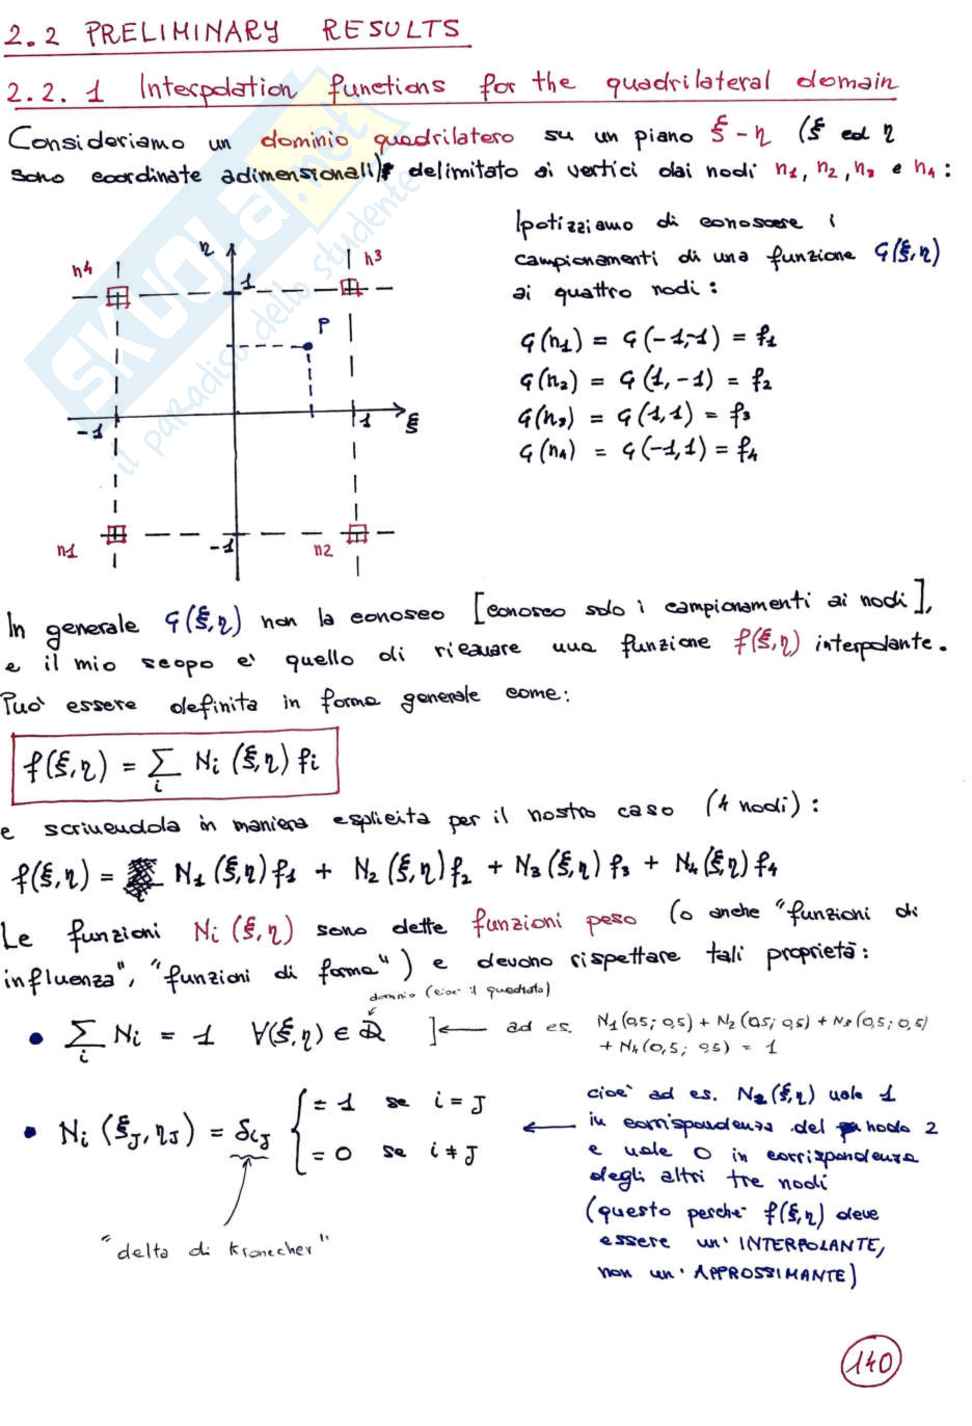 2.2 PRELIMINARY RESULTS
2.2.1 Interpolation functions for the quadrilateral domain
Consideriamo un dominio quadrilatero su un piano ξ-η (ξ ed η
sono coordinate adimensionali) delimitato ai vertici dai nodi n1, n2, n3 e n4:
Ipotizziamo di conoscere i
campionamenti di una funzione G(ξ,η)
ai quattro nodi:
G(n1) = G(-1,-1) = f1
G(n2) = G(1,-1) = f2
G(n3) = G(1,1) = f3
G(n4) = G(-1,1) = f4
n4
η
1
n3
P
-1
1
ξ
n1
-1
n2
SKUOLA.net
il paradiso dello studente
In generale G(ξ,η) non la conosco [conosco solo i campionamenti ai nodi],
e il mio scopo e' quello di ricavare una funzione f(ξ,η) interpolante.
Può essere definita in forma generale come:
f(ξ,η) = Σi Ni (ξ,η) fi
e scrivendola in maniera esplicita per il nostro caso (4 nodi):
f(ξ,η) = N1 (ξ,η) f1 + N2 (ξ,η) f2 + N3 (ξ,η) f3 + N4 (ξ,η) f4
Le funzioni Ni (ξ,η) sono dette funzioni peso (o anche "funzioni di
influenza", "funzioni di forma") e devono rispettare tali proprietà:
dominio (cioe' il quadrato)
• Σi Ni = 1 ∀(ξ,η) ∈ Q ]← ad es. N1(0,5; 0,5) + N2(0,5; 0,5) + N3(0,5; 0,5)
+ N4(0,5; 0,5) = 1
• Ni (ξJ, ηJ) = δiJ { = 1 se i = J
= 0 se i ≠ J
"delta di Kronecher"
← cioe' ad es. N2(ξ,η) vale 1
in corrispondenza del nodo 2
e vale 0 in corrispondenza
degli altri tre nodi
(questo perche' f(ξ,η) deve
essere un' INTERPOLANTE,
non un' APPROSSIMANTE)
140